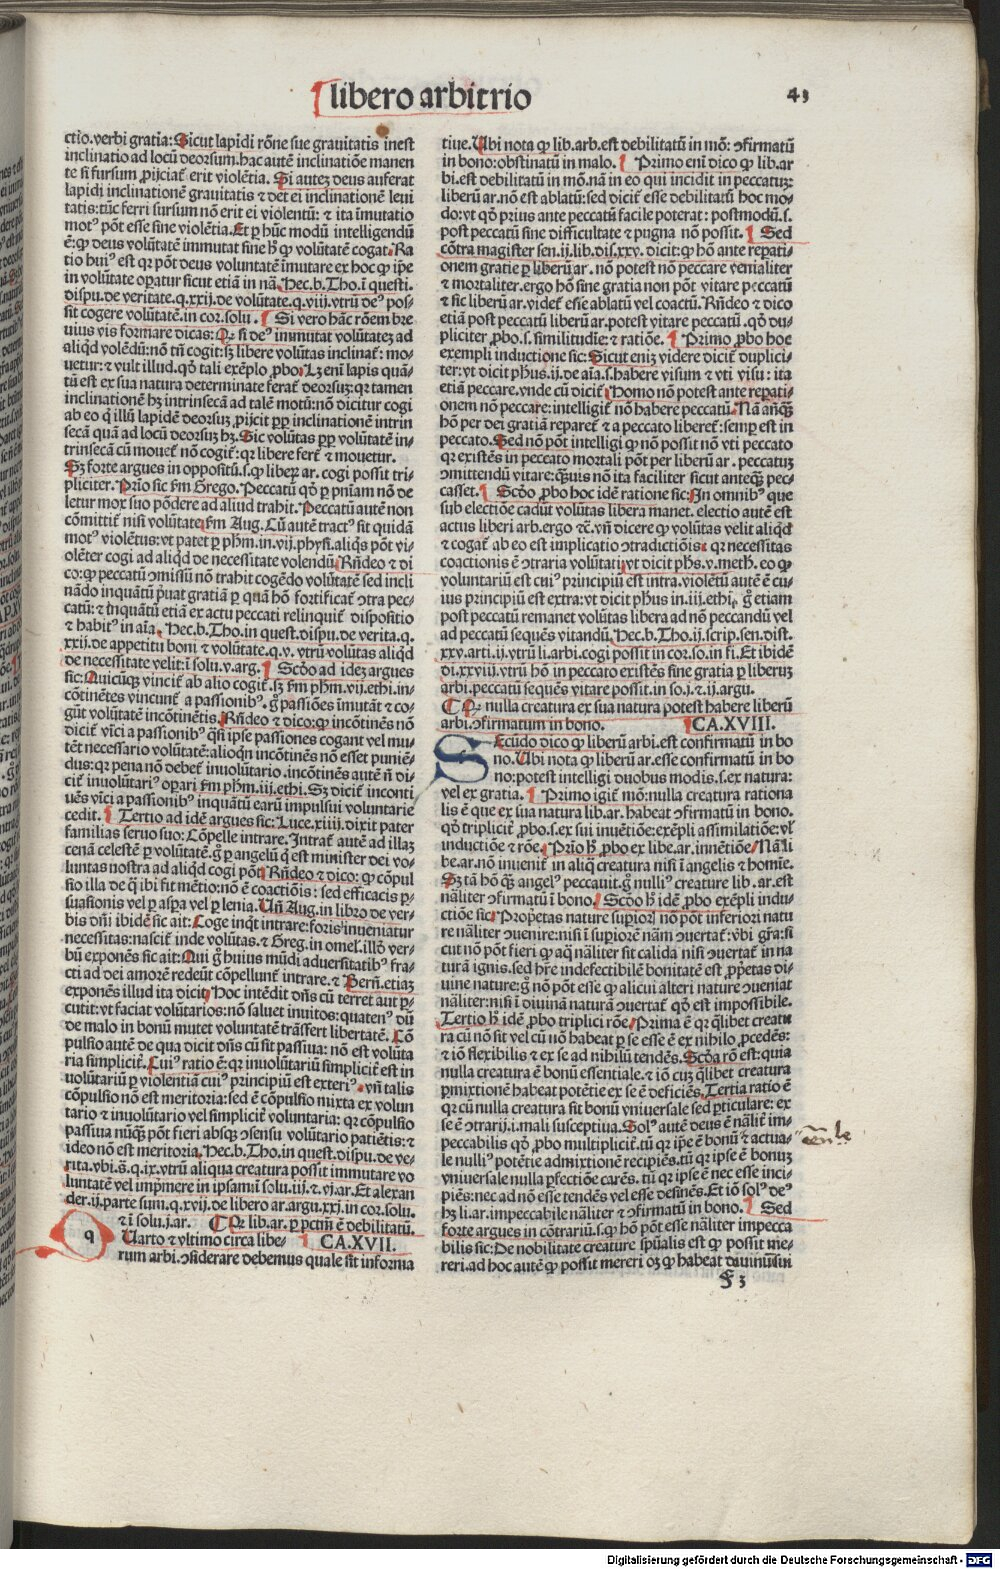 libero arbitrio
43
ctio. verbi gratia: Sicut lapidi rōne sue gravitatis inest
inclinatio ad locū deorsum. hac autē inclinatiōe manen
te si sursum ꝓijciat᷑ erit violētia. Si autez deus auferat
lapidi inclinationē gravitatis ⁊ det ei inclinationē levi
tatis: tūc ferri sursum nō erit ei violentū: ⁊ ita īmutatio
motꝰ pōt esse sine violētia. Et ꝑ hūc modū intelligendū
ē: ꝙ deus volūtatē immutat sine hͦ ꝙ volūtatē cogat. Ra
tio huiꝰ est qꝛ pōt deus voluntatē īmutare ex hoc ꝙ ip̄e
in volūtate oꝑatur sicut etiā in nā. Hec. b. Tho. ī questi.
dispu. de veritate. q. xxij. de volūtate. q. viij. vtrū deꝰ pos-
sit cogere volūtatē. in cor. solu. Si vero hāc rōem bre
vius vis formare dicas: Qꝙ si deꝰ immutat volūtatez ad
aliqd volēdū: nō tn̄ cogit: sꝫ libere volūtas inclinat᷑: mo-
uetur: ⁊ vult illud. qd̓ tali exēplo ꝓbo. Lꝫ eni lapis quā-
tū est ex sua natura determinate ferat᷑ deorsuz: qꝛ tamen
inclinationē hꝫ intrinsecā ad talē motū: nō dicitur cogi
ab eo q̇ illū lapidē deorsuꝫ ꝓijcit ꝓp inclinationē intrin
secā quā ad locū deorsuꝫ hꝫ. Sic volūtas ꝓp volūtatē in-
trinsecā cū mouet᷑ nō cogit᷑: qꝛ libere fert᷑ ⁊ mouetur.
Sꝫ forte argues in oppositū. s. ꝙ liberꝫ ar. cogi possit tri-
pliciter. Prīo sic fm Grego. Peccatū qd̓ ꝑ pn̄iam nō de
letur mox suo pōdere ad aliud trahit. Peccatū autē non
cōmittit᷑ nisi volūtate fm Aug. Cū autē tractꝰ sit quidā
motꝰ violētus: vt patet ꝑ phm. in. vij. physi. aliqs pōt vi-
olēter cogi ad aliqd de necessitate volendū. Rn̄deo ⁊ di
co: ꝙ peccatū ꝯmissū nō trahit cogēdo volūtatē sed incli
nādo inquātū pͥuat gratia ꝑ quā hō fortificat᷑ ꝯtra pec-
catū: ⁊ inquātū etiā ex actu peccati relinquit᷑ dispositio
⁊ habitꝰ in aīa. Hec. b. Tho. in quest. dispu. de verita. q.
xxij. de appetitu boni ⁊ volūtate. q. v. vtrū volūtas aliqd
de necessitate velit: ī solu. v. arg. Scd̓o ad idez argues
sic: Quicūqꝫ vincit᷑ ab alio cogit᷑. sꝫ fm phm. vij. ethi. in-
cōtinētes vincunt᷑ a passionibꝰ. gͦ passiōes īmutāt ⁊ co-
gūt volūtatē incōtinētis. Rn̄deo ⁊ dico: ꝙ incōtinēs nō
dicit᷑ vīci a passionibꝰ qͣsi ip̄se passiones cogant vel mu-
tēt necessario volūtatē: alioqn incōtinēs nō esset puniē-
dus: qꝛ pena nō debet᷑ inuolūtario. incōtinēs autē n̄ di-
cit᷑ inuolūtariꝰ oꝑari fm phm. iij. ethi. Sꝫ dicit᷑ inconti
uēs vīci a passionibꝰ inquātū earū impulsui voluntarie
cedit. Tertio ad idē argues sic: Luce. xiiij. dixit pater
familias seruo suo: Cōpelle intrare. Intrat᷑ autē ad illaꝫ
cenā celestē ꝑ volūtatē. gͦ ꝑ angelū q̇ est minister dei vo-
luntas nostra ad aliqd cogi pōt. Rn̄deo ⁊ dico: ꝙ cōpul
sio illa de q̄ ibi fit mētio: nō ē coactiōis: sed efficacis ꝑ-
suasionis vel ꝑ aspa vel ꝑ lenia. Un̄ Aug. in libro de ver-
bis dn̄i ibidē sic ait: Coge inqͥt intrare: foris inueniatur
necessitas: nascit᷑ inde volūtas. ⁊ Greg. in omel. illoͣ ver-
bū exponēs sic ait: Qui gͦ huius mūdi aduersitatibꝰ fra-
cti ad dei amorē redeūt cōpellunt᷑ intrare. ⁊ Bern̄. etiaꝫ
exponēs illud ita dicit: Hoc intēdit dn̄s cū terret aut ꝑ-
cutit: vt faciat volūtarios: nō saluet inuitos: quatenꝰ dū
de malo in bonū mutet voluntatē trāsfert libertatē. Cō
pulsio autē de qua dicit dn̄s cū sit passiua: nō est volūta
ria simplicit᷑. Cuiꝰ ratio ē: qꝛ inuolūtariū simplicit᷑ est in
uolūtariū ꝑ violentiā cuiꝰ principiū est exteriꝰ. vn̄ talis
cōpulsio nō est meritoria: sed ē cōpulsio mixta ex volun
tario ⁊ inuolūtario vel simplicit᷑ voluntaria: qꝛ cōpulsio
passiua nūqꝫ pōt fieri absqꝫ ꝯsensu volūtario patiētis: ⁊
ideo nō est meritoria. Hec. b. Tho. in quest. dispu. de ve-
rita. vbi. s̄. q. ix. vtrū aliqua creatura possit immutare vo
luntatē vel imp̄mere in ipsam: ī solu. iij. ⁊ vj. ar. Et alexan
der. ij. parte sum. q. xvij. de libero ar. argu. xxj. in cor. solu.
⁊ ī solu. j. ar. Qꝙ lib. ar. ꝑ pctm̄ ē debilitatū.
q Uarto ⁊ vltimo circa libe- CA. XVII.
rum arbi. ꝯsiderare debemus quale sit informa
tiue. Ubi nota ꝙ lib. arb. est debilitatū in mō: ꝯfirmatū
in bono: obstinatū in malo. Primo eni dico ꝙ lib. ar
bi. est debilitatū in mō. nā in eo qui incidit in peccatuꝫ
liberū ar. nō est ablatū: sed dicit᷑ esse debilitatū hoc mo-
do: vt qd̓ prius ante peccatū facile poterat: postmodū. s.
post peccatū sine difficultate ⁊ pugna nō possit. Sed
cōtra magister sen. ij. lib. dis. xxv. dicit: ꝙ hō ante reꝑati-
onem gratie ꝑ liberū ar. nō potest nō peccare venialiter
⁊ mortaliter. ergo hō sine gratia non pōt vitare peccatū
⁊ sic liberū ar. videt᷑ esse ablatū vel coactū. Rn̄deo ⁊ dico
etiā post peccatū liberū ar. potest vitare peccatū. qd̓ du-
pliciter ꝓbo. s. similitudīe: ⁊ ratiōe. Primo ꝓbo hoc
exempli inductione sic: Sicut eniꝫ videre dicit᷑ duplici-
ter: vt dicit phūs. ij. de aīa. s. habere visum ⁊ vti visu: ita
etiā peccare. vnde cū dicit᷑: Homo nō potest ante reꝑati-
onem nō peccare: intelligit᷑ nō habere peccatū. Nā anqͣꝫ
hō per dei gratiā reparet᷑ ⁊ a peccato liberet᷑: semꝑ est in
peccato. Sed nō pōt intelligi ꝙ nō possit nō vti peccato
qꝛ existēs in peccato mortali pōt per liberū ar. peccatuꝫ
ꝯmittendū vitare: qͣuis non ita faciliter sicut anteqͣꝫ pec-
casset. Scd̓o ꝓbo hoc idē ratione sic: In omnibꝰ que
sub electiōe cadūt volūtas libera manet. electio autē est
actus liberi arb. ergo ⁊c. vn̄ dicere ꝙ volūtas velit aliqd
⁊ cogat᷑ ab eo est implicatio ꝯtradictiōis: qꝛ necessitas
coactionis ē ꝯtraria volūtati: vt dicit ph̄s. v. meth. eo ꝙ
voluntariū est cuiꝰ principiū est intra. violētū autē ē cu-
ius principiū est extra: vt dicit phūs in. iij. ethi. gͦ etiam
post peccatū remanet volūtas libera ad nō peccandū vel
ad peccatū sequēs vitandū. Hec. b. Tho. ij. scrip. sen. dist.
xxv. arti. ij. vtrū li. arbi. cogi possit in cor. so. in fi. Et ibidē
di. xxviij. vtrū hō in peccato existēs sine gratia ꝑ liberuꝫ
arbi. peccatū sequēs vitare possit. in so. j. ⁊ ij. argu.
Qꝙ nulla creatura ex sua natura potest habere liberū
arbi. ꝯfirmatum in bono. CA. XVIII.
SEcūdo dico ꝙ liberū arbi. est confirmatū in bo
no. Ubi nota ꝙ liberū ar. esse confirmatū in bo
no: potest intelligi duobus modis. s. ex natura:
vel ex gratia. Primo igit᷑ mō: nulla creatura rationa
lis ē que ex sua natura lib. ar. habeat ꝯfirmatū in bono.
qd̓ triplicit᷑ ꝓbo. s. ex sui inuētiōe: exēpli assimilatiōe: vl̓
inductiōe ⁊ rōe. Prīo hͦ ꝓbo ex libe. ar. inuētiōe. Nā li
be. ar. nō inuenit᷑ in aliq̄ creatura nisi ī angelis ⁊ homīe.
Sꝫ tā hō qͣꝫ angelꝰ peccauit. gͦ nulliꝰ creature lib. ar. est
nāliter ꝯfirmatū ī bono. Scd̓o hͦ idē ꝓbo exēpli indu-
ctiōe sic: Proprietas nature superioꝝ nō pōt inferiori natu
re nāliter ꝯuenire: nisi ī suꝑiorē nām ꝯuertat᷑: vbi gr̄a: si
cut nō pōt fieri ꝙ aq̄ nāliter sit calida nisi ꝯuertat᷑ in na
turā ignis. sed hr̄e indefectibilē bonitatē est ꝓprietas di-
uine nature: gͦ nō pōt esse ꝙ alicui alteri nature ꝯueniat
nāliter: nisi ī diuinā naturā ꝯuertat᷑ qd̓ est impossibile.
Tertio hͦ idē ꝓbo triplici rōe. Prima ē qꝛ qͣlibet creatu
ra cū nō sit vel cū nō habeat ꝑ se esse ē ex nihilo ꝓcedēs:
⁊ iō flexibilis ⁊ ex se ad nihilū tendēs. Scd̓a rō est: quia
nulla creatura ē bonū essentiale. ⁊ iō cuꝫ qͣlibet creatura
ꝑmixtionē habeat potētie ex se ē deficiēs. Tertia ratio ē
qꝛ cū nulla creatura sit bonū vniuersale sed ꝑticulare: ex
se ē ꝯtrarij. i. mali susceptiua. Solꝰ autē deus ē nālit᷑ im-
peccabilis qd̓ ꝓbo multiplicit᷑. tū qꝛ ip̄e ē bonū ⁊ actua-
le nulliꝰ potētie admixtionē recipiēs. tū qꝛ ipse ē bonuꝫ
vniuersale nulla ꝑfectiōe carēs. tū qꝛ ipse ē nec esse inci-
piēs: nec ad nō esse tendēs vel esse desinēs. Et iō solꝰ deꝰ
hꝫ li. ar. impeccabile nāliter ⁊ ꝯfirmatū in bono. Sed
forte argues in cōtrariū. s. ꝙ hō pōt esse nāliter impecca
bilis sic: De nobilitate creature spūalis est ꝙ possit me-
reri. ad hoc autē ꝙ possit mereri oꝫ ꝙ habeat dn̄ium sui
F 3
Digitalisierung gefördert durch die Deutsche Forschungsgemeinschaft - DFG